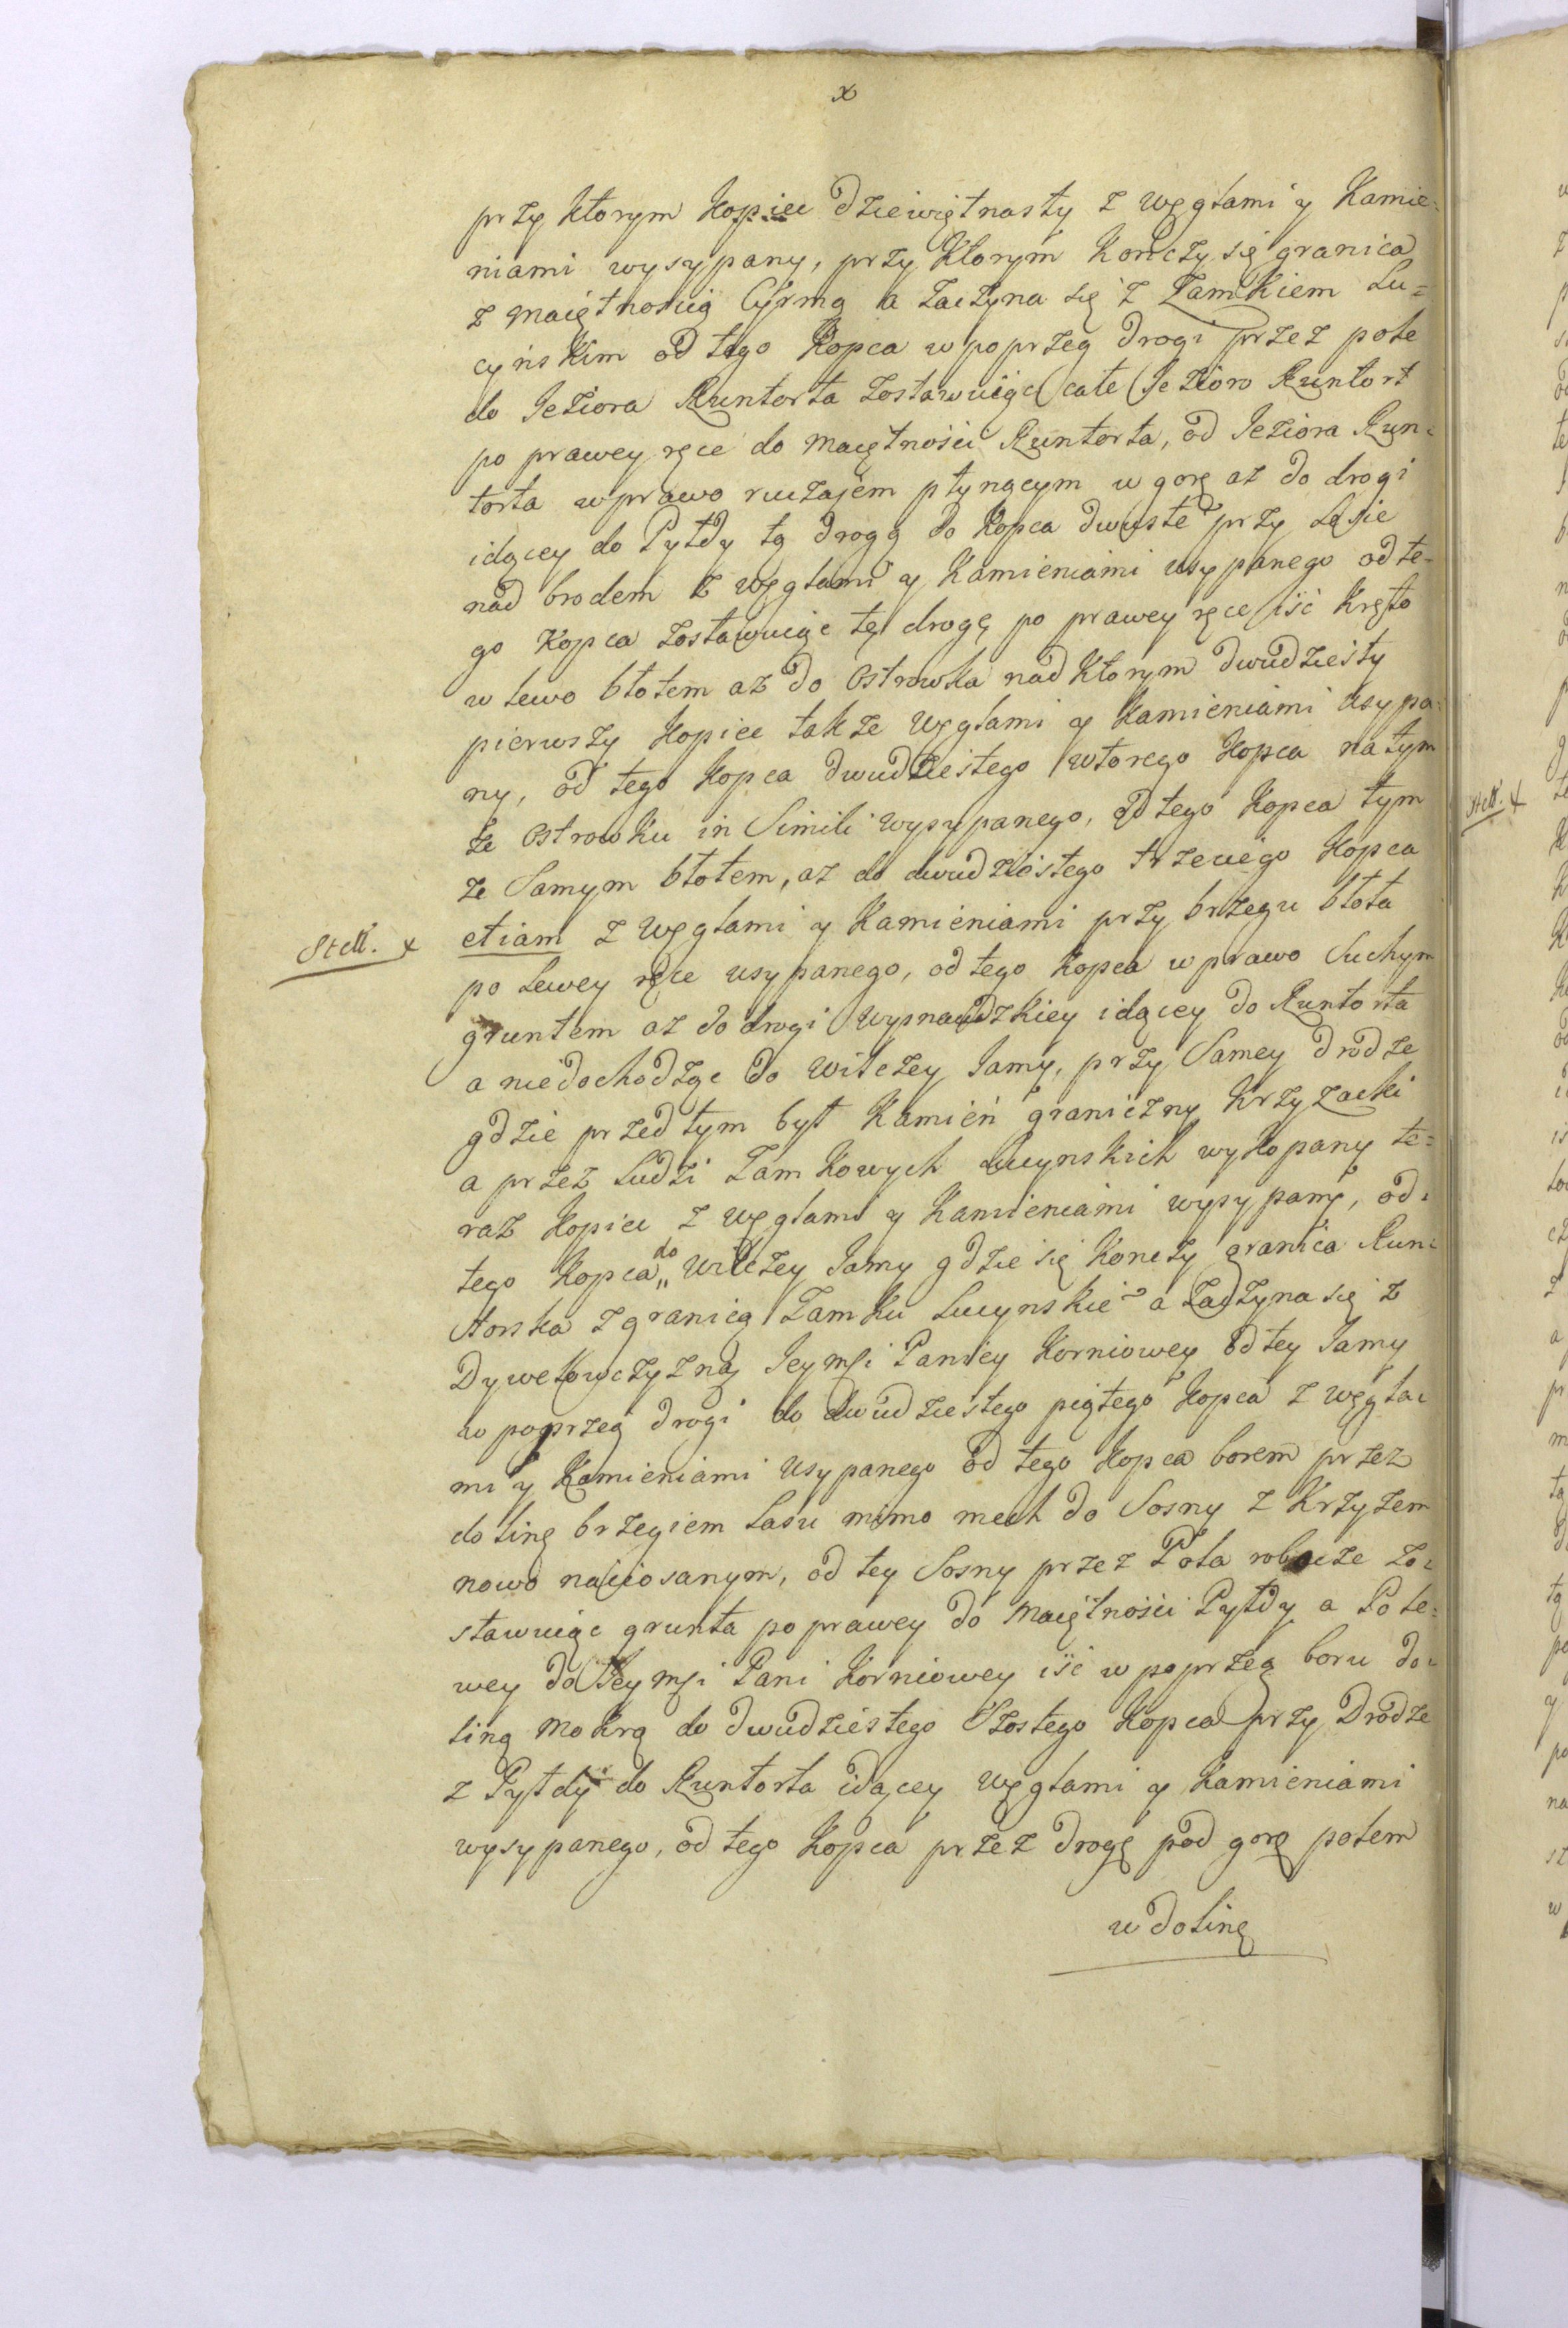 x
przy ktorym Kopiec dziewiętnasty z węgłami y Kamie=
niami wysypany, przy Ktorym Konczy się granica
z maiętnoscią Cyrmą a zaczyna się z Zamkiem Lu=
cyńskim od tego Kopca w poprzeg drogi przez pole
do Jeziora Runtorta zostawuiąc całe Jezioro Runtort
po prawey ręce do maiętności Runtorta, od Jeziora Run=
torta w prawo ruczajem płynącym w gorę az do drogi
idącey do Pyłdy tą drogą do Kopca dwuste° przy Lesie
nad brodem z węgłami y Kamieniami usypanego od te=
go Kopca zostawuiąc tę drogę po prawey ręce iść Kręto
w lewo błotem az do Ostrowka nad Ktorym dwudziesty
pierwszy Kopiec takze węgłami y Kamieniami usypa=
ny, od tego Kopca dwudziestego wtorego Kopca na tym
ze Ostrowku in Simili wysypanego, od tego Kopca tym
ze Samym błotem, az do dwudziestego trzeciego Kopca
Stett. x etiam z węgłami y Kamieniami przy brzegu błota
po Lewey ręce usypanego, od tego Kopca w prawo Suchym
gruntem az do drogi idącey do Runtorta
a niedochodząc do Wilczey Jamy, przy Samey drodze
gdzie przedtym był Kamień graniczny Krzyzacki
a przez Ludzi Zamkowych Lucynskich wykopany te=
raz Kopiec z węgłami y Kamieniami wysypany, od
tego Kopca do Wilczey Jamy gdzie się Konczy granica Run=
torska z granicą Zamku Lucynskie° a zaczyna się z
Dywetowczyzną Jeymsi Paniey Korniowey od tey Jamy
w poprzeg drogi do dwudziestego piątego Kopca z węgła=
mi y Kamieniami usypanego od tego Kopca borem przez
dolinę brzegiem Lasu mimo mech do Sosny z Krzyzem
nowo naciosanym, od tey Sosny przez Pola robocze zo=
stawuiąc grunta po prawey do maiętności Pyłdy a Po le=
wey do Jeymsi Pani Korniowey iść w poprzeg boru do=
liną mokrą do dwudziestego Szostego Kopca przy Drodze
z Pyłdy do Runtorta idącey węgłami y Kamieniami
wysypanego, od tego Kopca przez drogę pod gorę polem
w dolinę
Stett. x